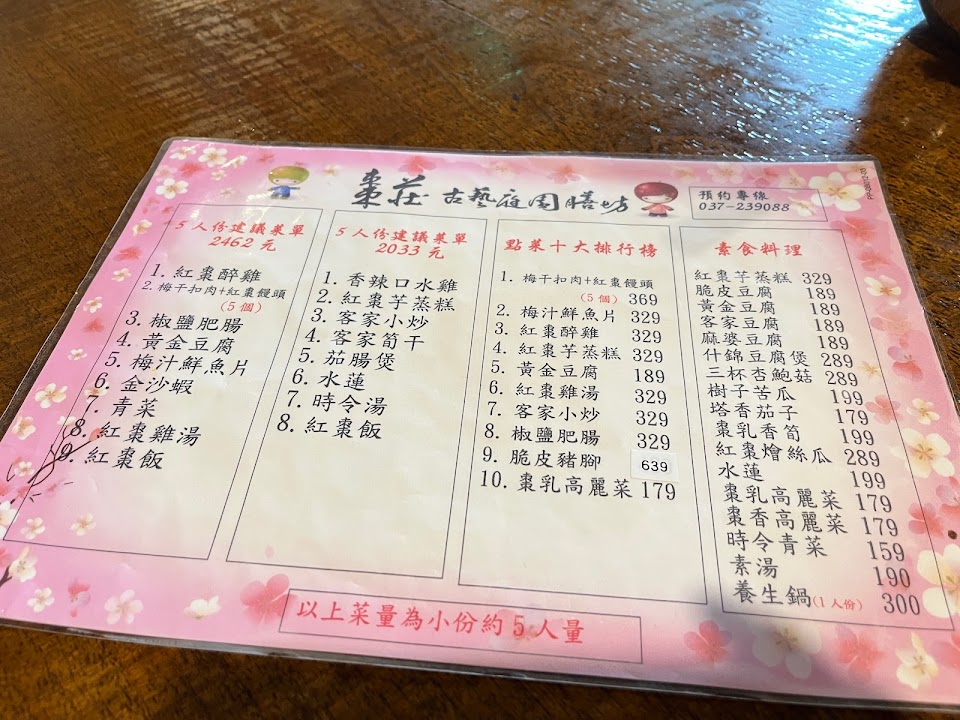 棗莊 古藝庭園膳坊
預約專線
037-239088
5人份建議菜單
2462 元
1. 紅棗醉雞
2. 梅干扣肉+紅棗饅頭
(5 個)
3. 椒鹽肥腸
4. 黃金豆腐
5. 梅汁鮮魚片
6. 金沙蝦
7. 青菜
8. 紅棗雞湯
9. 紅棗飯
5人份建議菜單
2033 元
1. 香辣口水雞
2. 紅棗芋蒸糕
3. 客家小炒
4. 客家筍干
5. 茄腸煲
6. 水蓮
7. 時令湯
8. 紅棗飯
點菜十大排行榜
1. 梅干扣肉+紅棗饅頭
(5 個) 369
2. 梅汁鮮魚片 329
3. 紅棗醉雞 329
4. 紅棗芋蒸糕 329
5. 黃金豆腐 189
6. 紅棗雞湯 329
7. 客家小炒 329
8. 椒鹽肥腸 329
9. 脆皮豬腳 639
10. 棗乳高麗菜 179
素食料理
紅棗芋蒸糕 329
脆皮豆腐 189
黃金豆腐 189
客家豆腐 189
麻婆豆腐 189
什錦豆腐煲 289
三杯杏鮑菇 289
樹子苦瓜 199
塔香茄子 179
棗乳香筍 199
紅棗燴絲瓜 289
水蓮 199
棗乳高麗菜 179
棗香高麗菜 179
時令青菜 159
素湯 190
養生鍋(1人份) 300
以上菜量為小份約5人量